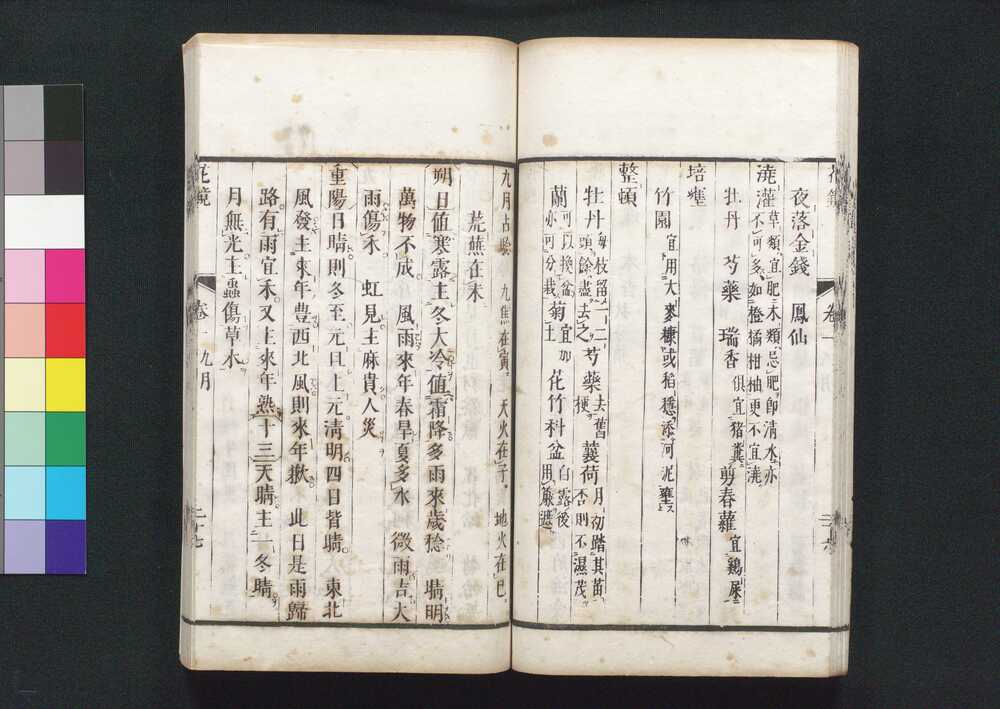 夜落金錢 鳳仙
澆灌 草類宜肥木類忌肥卽清水亦
不可多如橙橘柑柚更不宜澆
牡丹 芍藥 瑞香 俱宜猪糞 剪春蘿 宜鷄屎
培壅
竹園 宜用大麥糠或稻穩添河泥壅
整頓
牡丹 每枝留一二頭餘盡去之 芍藥 去舊梗 蘘荷 月初踏其苗否則不濕茂
蘭 可以換盆亦可分栽 菊 宜加土 花竹科盆 白露後用簾遮
九月占驗 九焦在寅 天火在子 地火在巳
荒蕪在未
朔日值寒露主冬大冷值霜降多雨來歲稔 晴明
萬物不成 風雨來年春旱夏多水 微雨吉大
雨傷禾 虹見主麻貴人災
重陽日晴則冬至元旦上元清明四日皆晴 東北
風發主來年豊西北風則來年歉 此日是雨歸
路有雨宜禾又主來年熟 十三天晴主一冬晴
月無光主蟲傷草木
花鏡 卷一 九月 二十七